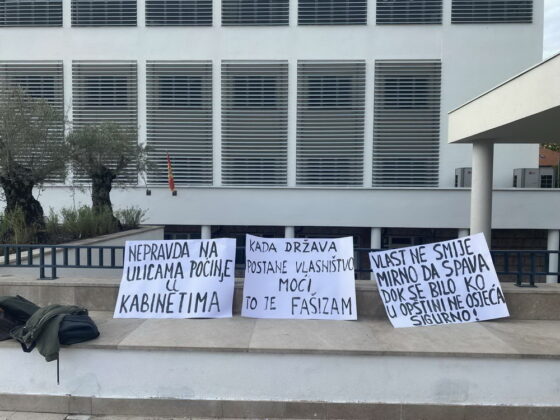 NEPRAVDA NA
ULICAMA POČINJE
U
KABINETIMA
KADA DRŽAVA
POSTANE VLASNIŠTVO
MOĆI,
TO JE FAŠIZAM
VLAST NE SMIJE
MIRNO DA SPAVA
DOK SE BILO KO
U OPŠTINI NE OSJEĆA
SIGURNO!